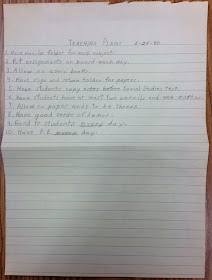 TEACHING PLANS 2-24-80
1. Use manila folder for each subject.
2. Put assignments on board each day.
3. Allow no comic books.
4. Have sign and return folder for papers.
5. Have students copy notes before Social Studies test.
6. Have students have at least two pencils and
7. Allow no paper wads to be thrown.
8. Have good sense of humor.
9. Read to students every day.
10. Have P.E. every day.